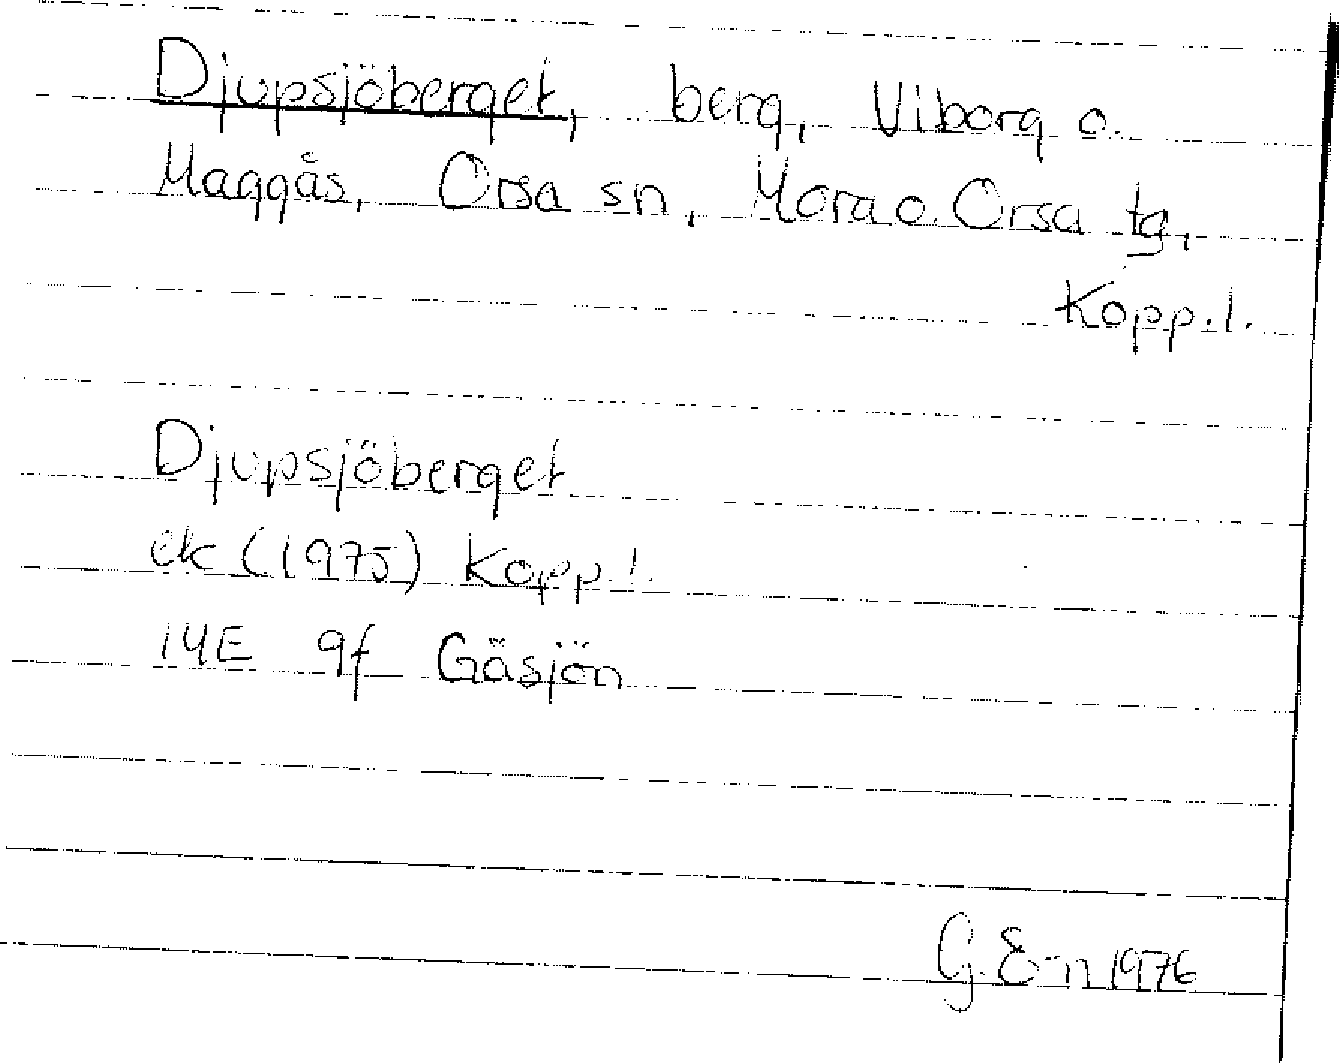 Djupsjöberget, berg, Viborg o.
Maggås, Orsa sn, Mora o. Orsa tg,
Kopp.l.
Djupsjöberget
ek (1975) Kopp l.
14E 9f Gäsjön
G. E-n 1976